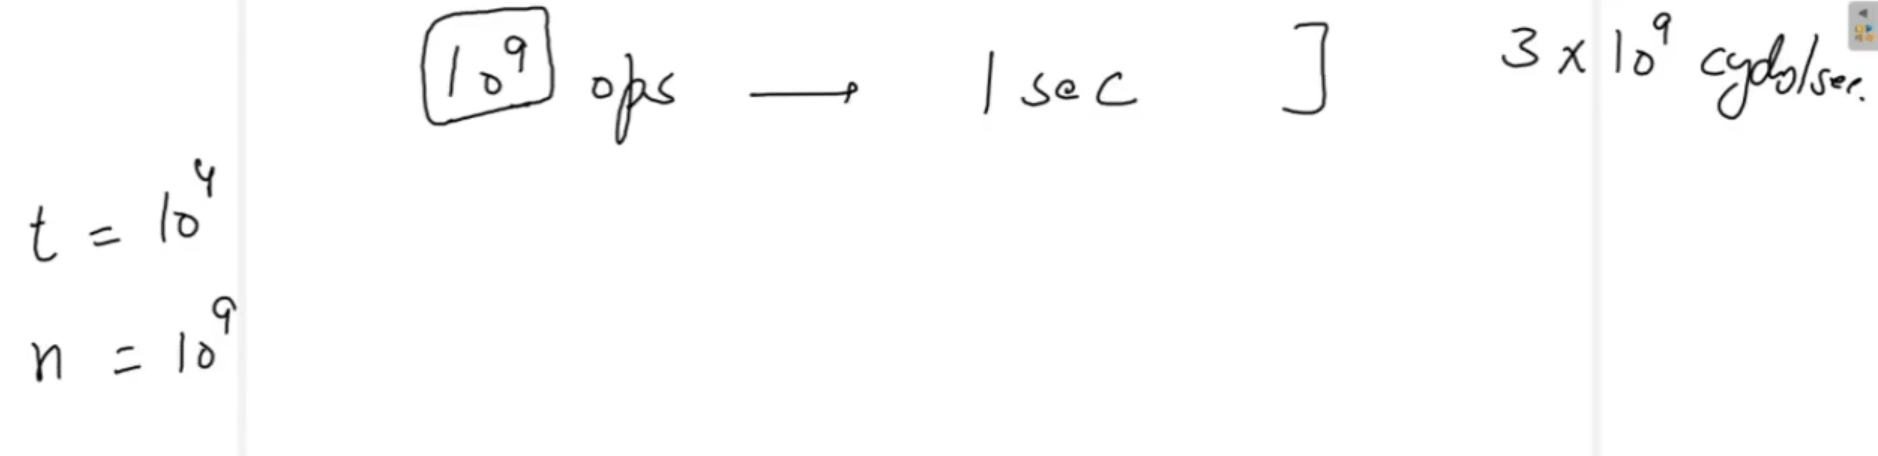 10⁹ ops → 1 sec ] 3 x 10⁹ cycles/sec.
t = 10⁴
n = 10⁹